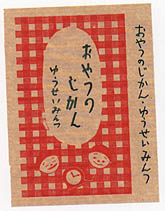 おやつのじかん
ゆうせいみんつ
おやつのじかん・ゆうせいみんつ